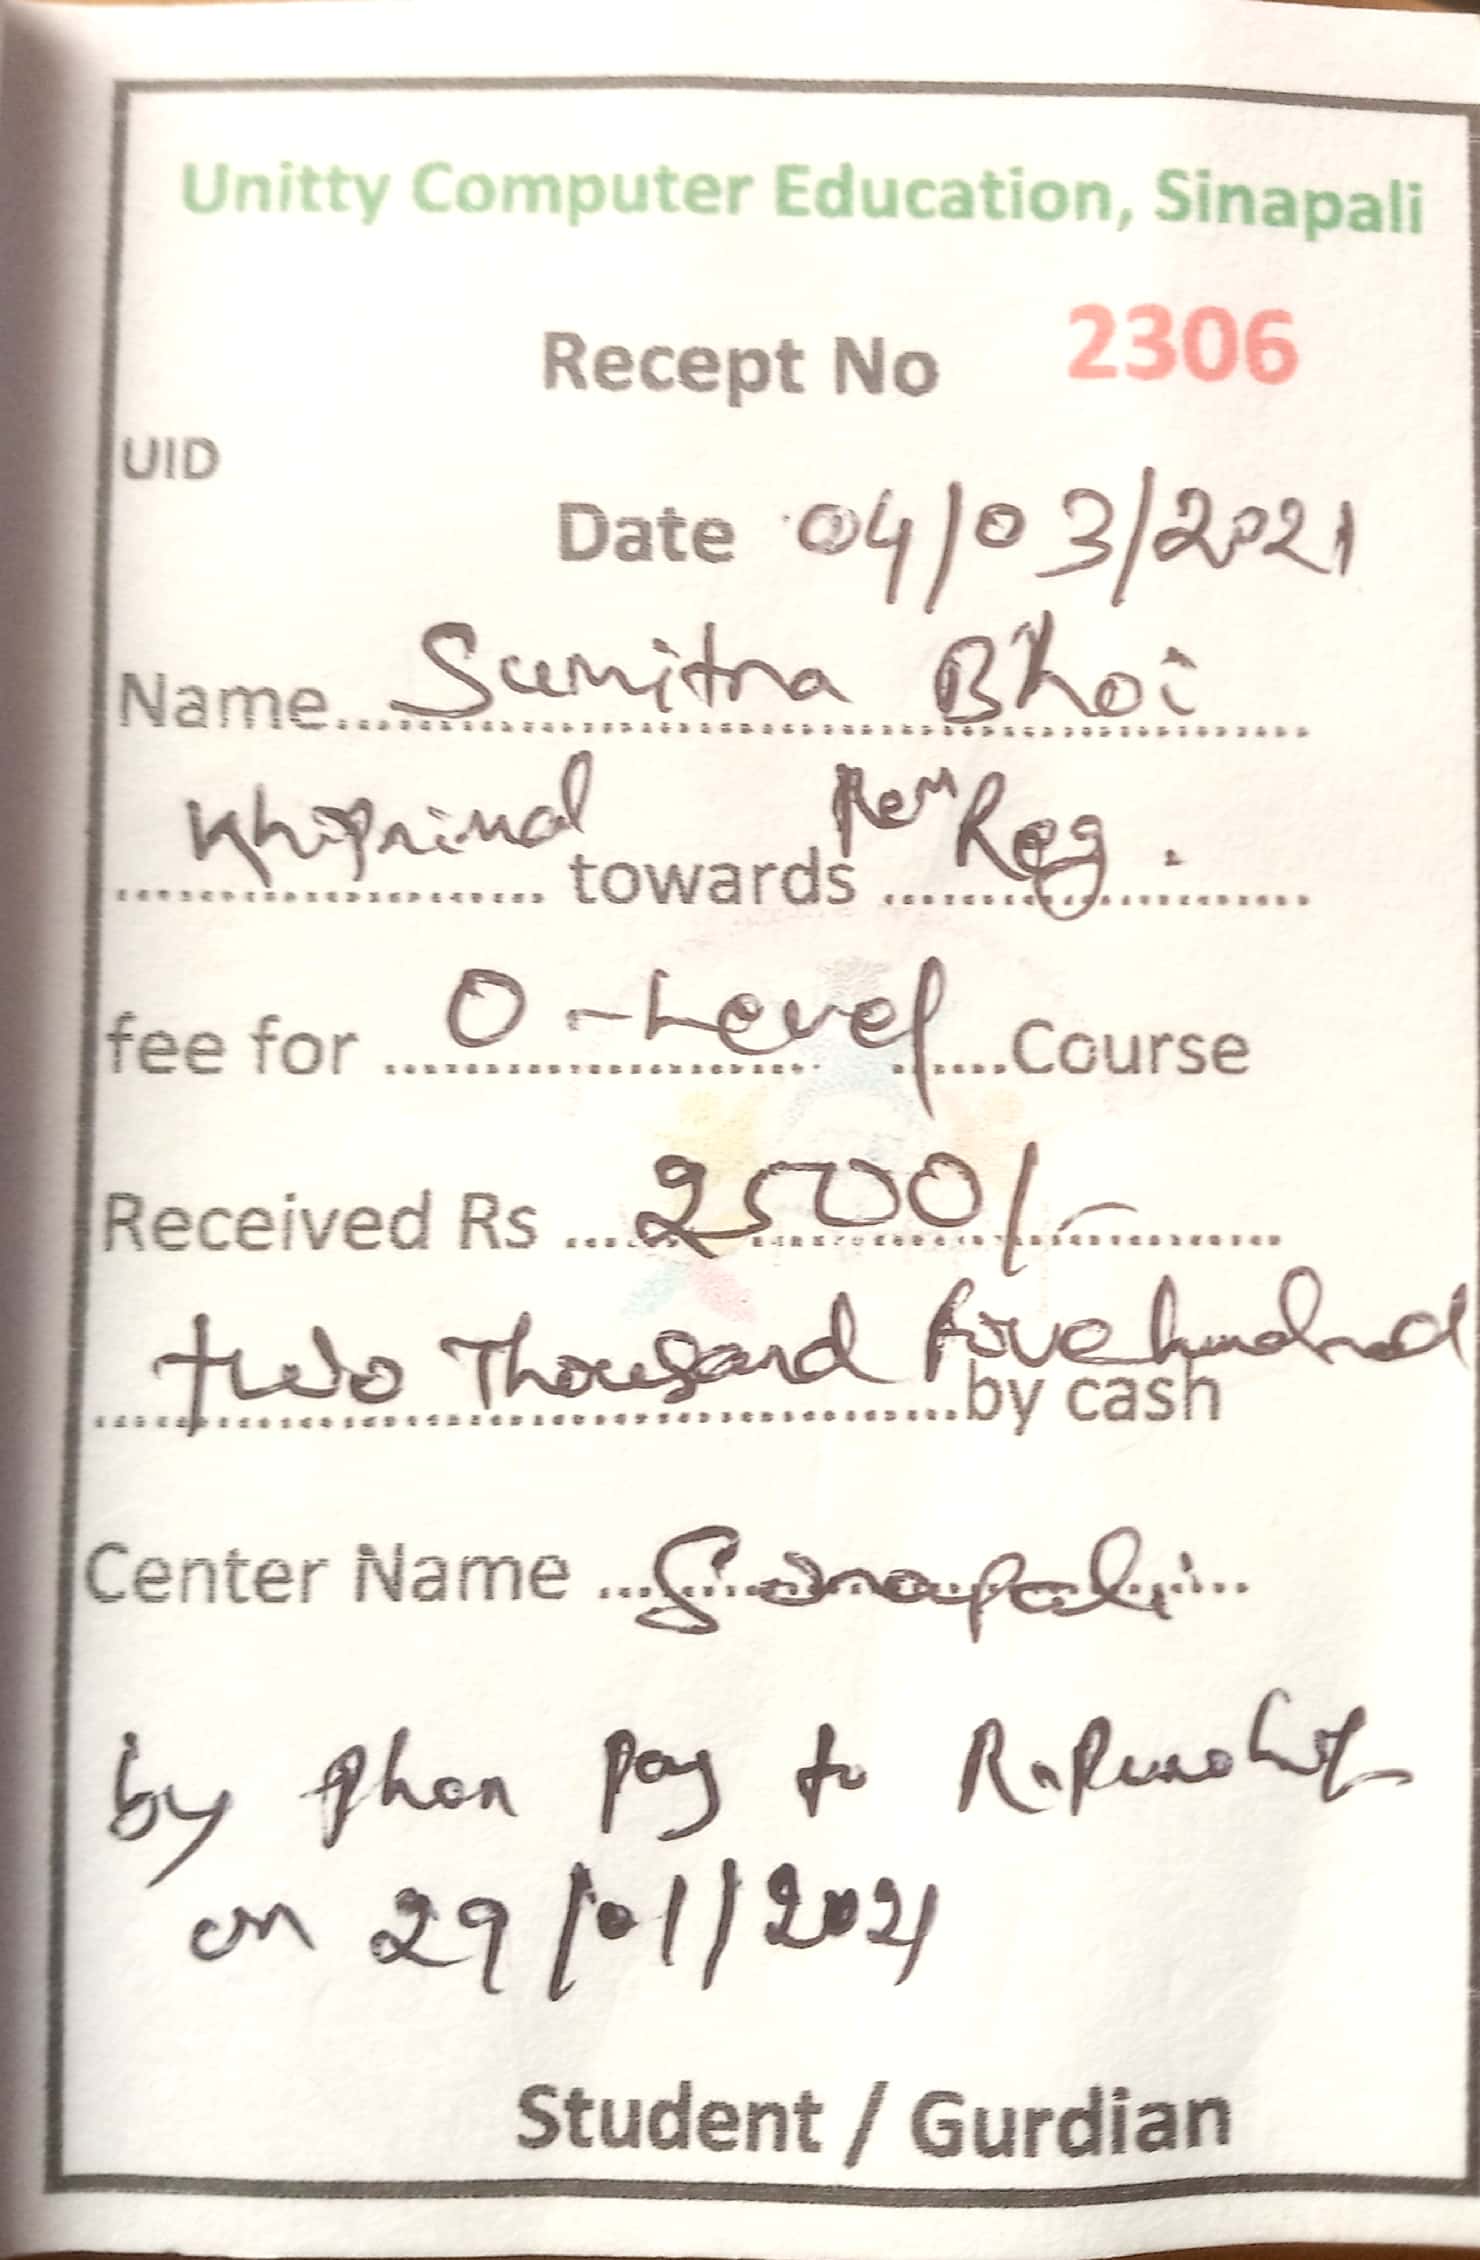 Unitty Computer Education, Sinapali
Recept No 2306
UID
Date 04/03/2021
Name Sumitra Bhoi
towards Reg.
fee for O-Level Course
Received Rs 2500/-
two Thousand five hundred by cash
Center Name Sinapali
by phon pay to
on 29/01/2021
Student / Gurdian